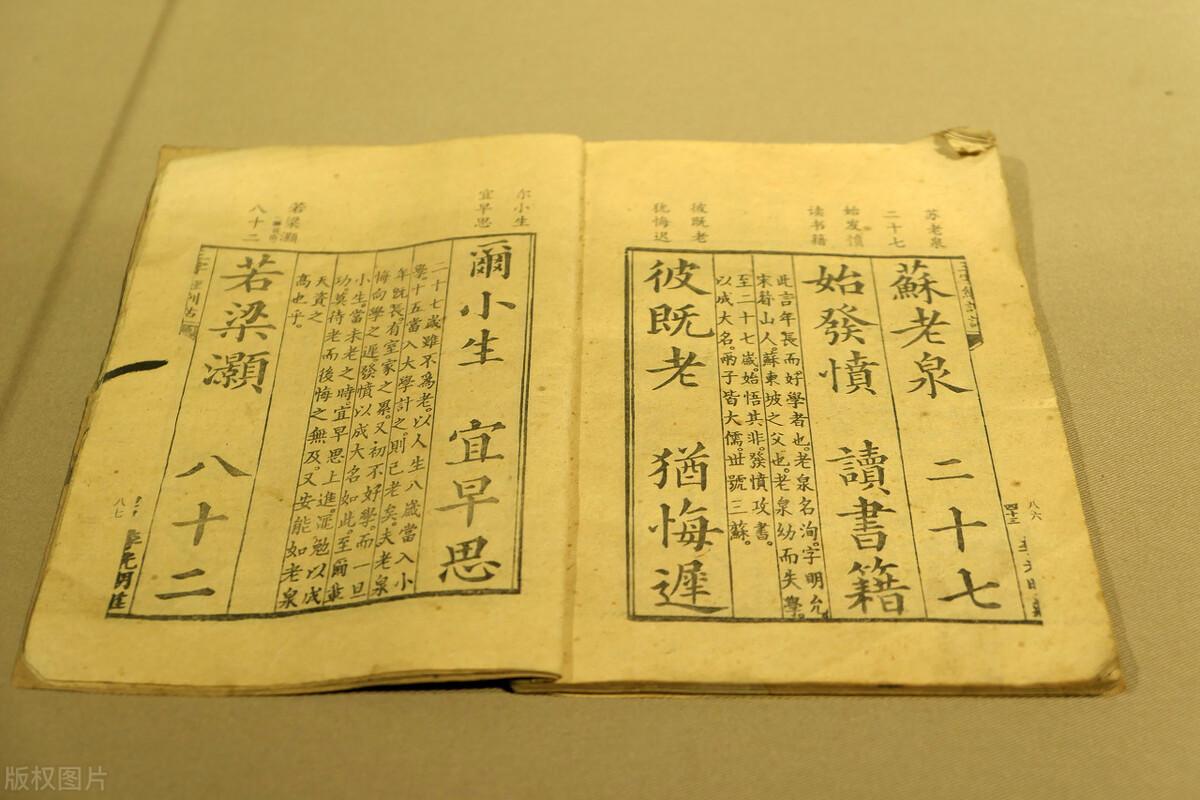 苏老泉
二十七
始发愤
读书籍
彼既老
犹悔迟
蘇老泉 二十七
始發憤 讀書籍
此言年長而好學者也。老泉名洵。字明允
宋山人。蘇東坡之父也。老泉幼而失學。
至二十七歲。始悟其非。發憤攻書。
以成大名。兩子皆大儒。世號三蘇。
彼既老 猶悔遲
八六
尔小生
宜早思
若梁灏
八十二
爾小生 宜早思
二十七歲雖不爲老。以人生八歲當入小
學。十五當入大學計之。則已老矣。夫老泉
年既長。有室家之累。又初不好學。而一旦
悔向學之遲。發憤以成大名如此。至爾
小生。當未老之時。宜早思上進。勉以成
功。莫待老而後悔之無及。又安能如老泉
天資之
高也乎。
若梁灝 八十二
八七